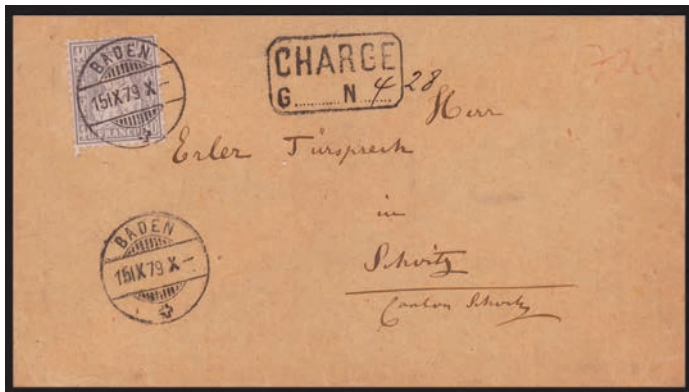 BADEN
15IX79 X–
FRANCO
CHARGE
G......... N.4 28
Herr
Erler Fürsprech
in
Schvitz
Canton Schvitz
BADEN
15IX79 X–